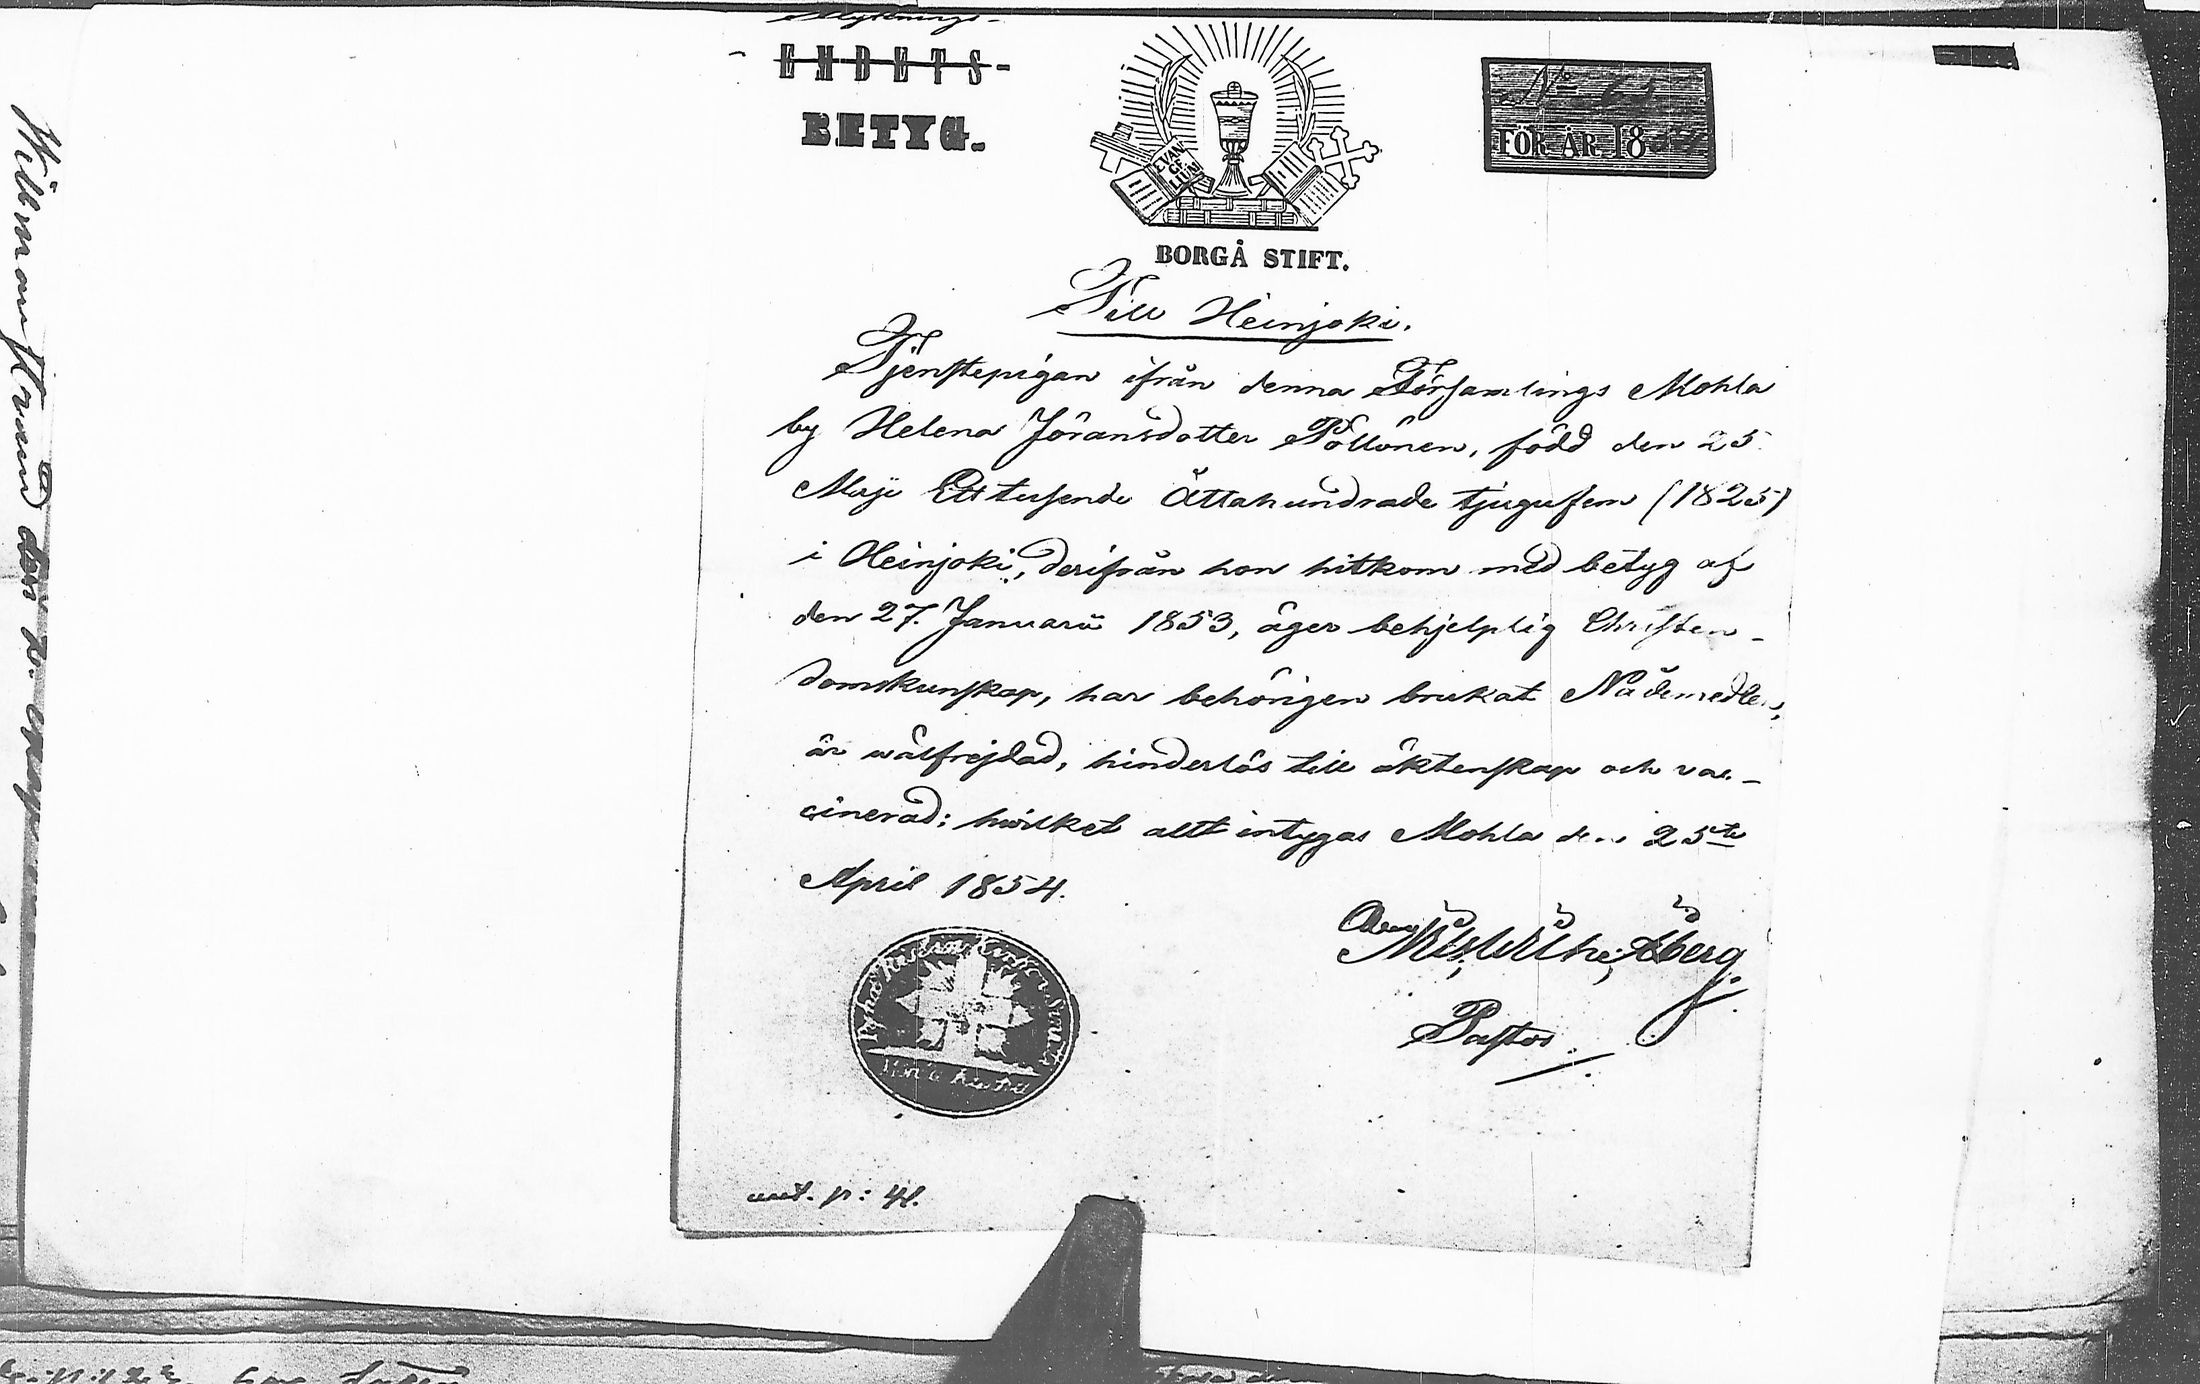 Flyttnings-
ENDETS-
BETYG.
No
FÖR ÅR 18
EVAN
GE
LIUM
BORGÅ STIFT.
Till Heinjoki.
Tjenstepigan ifrån denna Församlings Mohla
by Helena Jöransdotter Pöllönen, född den 25
Maji Ettusende Åttahundrade tjugufem (1825)
i Heinjoki, derifrån hon hitkom med betyg af
den 27. Januarii 1853, äger behjelplig Christen-
domskunskap, har behörigen brukat Nådemedlen,
är wälfrejdad, hinderlös till äktenskap och vac-
cinerad; hwilket allt intygas Mohla den 25te
April 1854.
Åberg
Pastor.
p: 41.
Wilmanstrand den